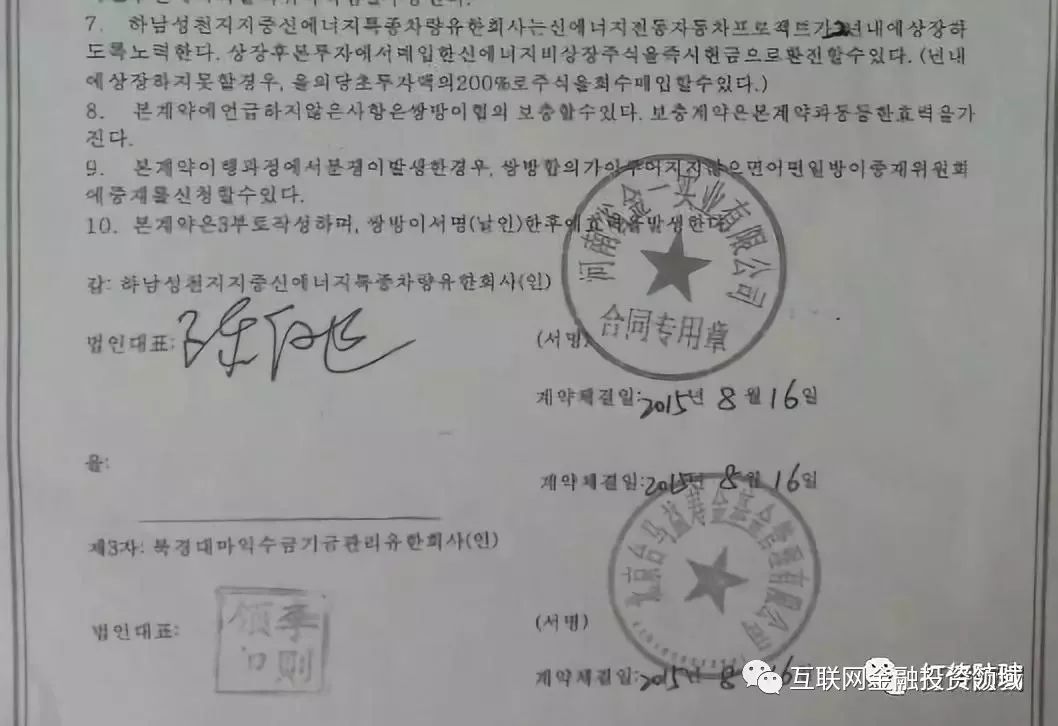 7. 하남성천지지중신에너지특종차량유한회사는신에너지전동자동차프로젝트가2년내에상장하
도록노력한다. 상장후본투자에서매입한신에너지비상장주식을즉시현금으로환전할수있다. (년내
에상장하지못할경우, 을의당초투자액의200%로주식을회수매입할수있다.)
8. 본계약에언급하지않은사항은쌍방이협의 보충할수있다. 보충계약은본계약과동등한효력을가
진다.
9. 본계약이행과정에서분쟁이발생한경우, 쌍방합의가이루어지지않으면어떤일방이중재위원회
에중재를신청할수있다.
10. 본계약은3부로작성하며, 쌍방이서명(날인)한후에효력을발생한다
갑: 하남성천지지중신에너지특종차량유한회사(인)
河南 金一实业有限公司
合同专用章
법인대표:
(서명)
계약체결일: 2015년 8월 16일
을:
계약체결일: 2015년 8월 16일
제3자: 북경대마익수금기금관리유한회사(인)
北京 基金管理有限公司
법인대표:
领李
印则
(서명)
계약체결일: 2015 8 16일
互联网金融投资防域